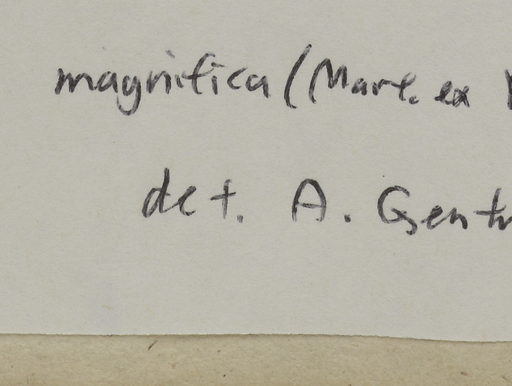 magnifica (Mart. ex
det. A. Gentr